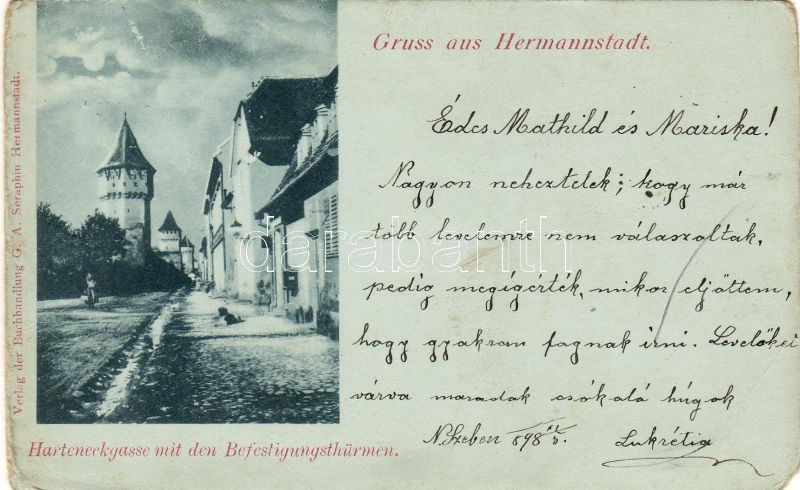 Gruss aus Hermannstadt.
Édes Mathild és Mariska!
Nagyon neheztelek; hogy már
több levelemre nem válaszoltak,
pedig megígérték, mikor eljöttem,
hogy gyakran fognak irni. Levelökei
várva maradok csókoló húgok
N.Szeben 898
Lukrétia
Harteneckgasse mit den Befestigungsthürmen.
Verlag der Buchhandlung G. A. Seraphin Hermannstadt.
darabanth